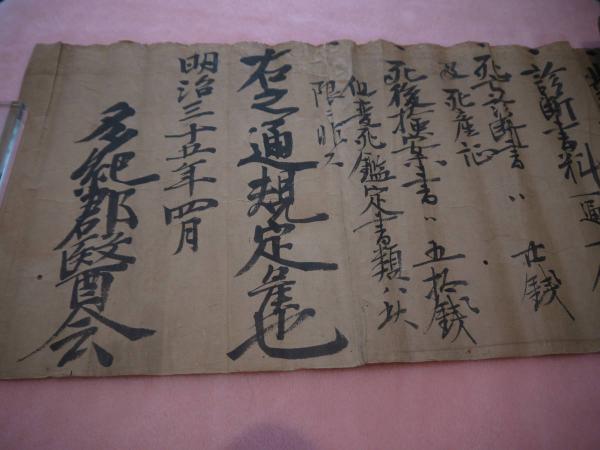 診断書料 一通
死亡診断書 〃 廿銭
及死産証
死後検案書 〃 五拾銭
但変死鑑定書類ハ此
限ニ非ス
右之通規定候也
明治三十五年四月
多紀郡醫会